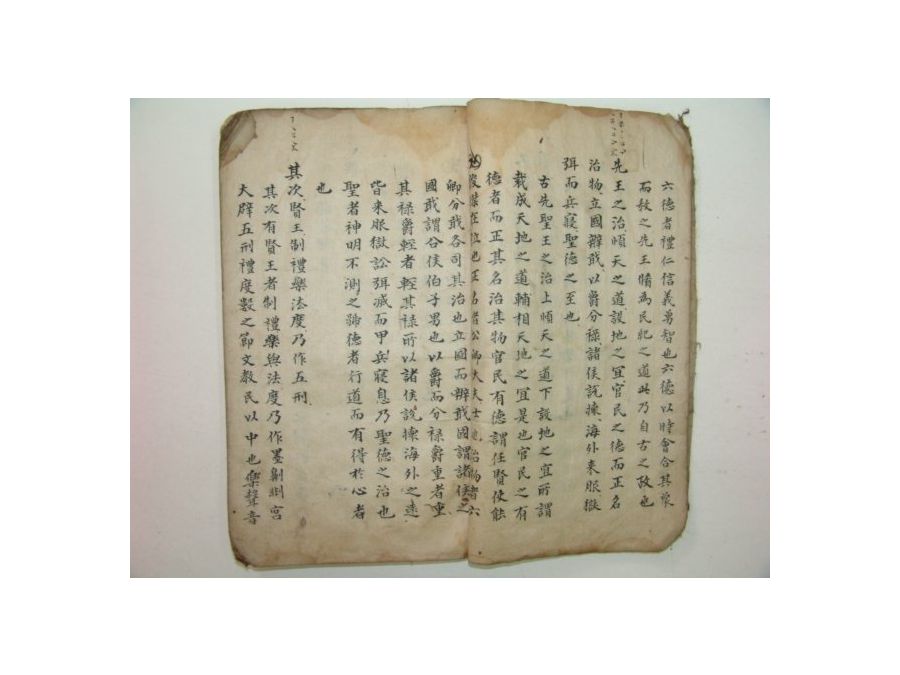 六德者禮仁信義勇智也六德以時會合其衆
而敎之先王脩爲民紀之道此乃自古之政也
先王之治順天之道設地之宜官民之德而正名
治物立國辨職以爵分祿諸侯說懷海外来服獄
弭而兵寢聖德之至也
古先聖王之治上順天之道下設地之宜所謂
裁成天地之道輔相天地之宜是也官民之有
德者而正其名治其物官民有德謂任賢使能
俊傑在位也正名者公卿大夫士也治物者六
卿分職各司其治也立國而辨職國謂諸侯之
國職謂公侯伯子男也以爵而分祿爵重者重
其祿爵輕者輕其祿所以諸侯說懷海外之遠
皆来服獄訟弭减而甲兵寢息乃聖德之治也
聖者神明不測之號德者行道而有得於心者
也
其次賢王制禮樂法度乃作五刑
其次有賢王者制禮樂與法度乃作墨劓剕宮
大辟五刑禮度數之節文敎民以中也樂聲音